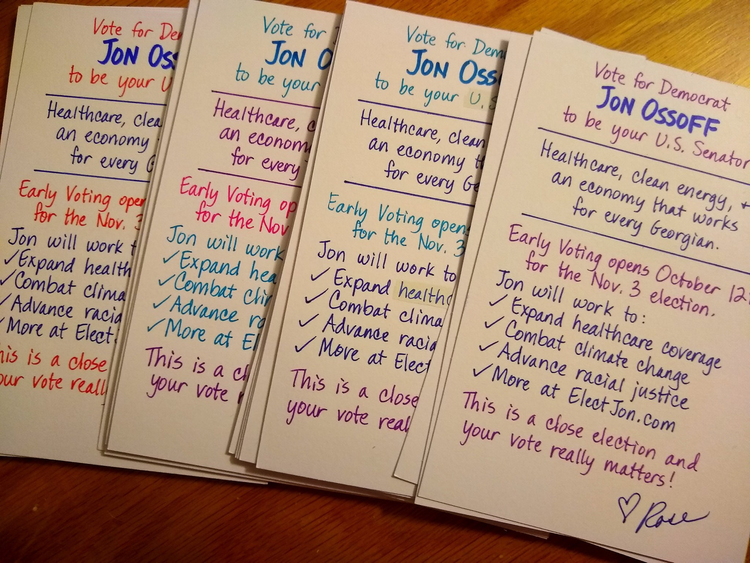 Vote for De
JON OSS
to be your U
Healthcare, clea
an economy
for every G
Early Voting open
for the Nov. 3
Jon will work t
✓Expand health
✓Combat clima
✓Advance racia
✓More at Elect
his is a close
our vote reall
Vote for
JON O
to be your
Healthcare, c
an econom
for every
Early Voting op
for the Nov
Jon will work
✓Expand hea
✓Combat cli
✓Advance ra
✓More at El
This is a cl
your vote r
Vote for Dem
JON OSS
to be your U.S
Healthcare, clean
an economy th
for every Ge
Early Voting opens
for the Nov. 3
Jon will work to
✓ Expand healthc
✓ Combat clima
✓ Advance racia
✓ More at Elect
This is a close
your vote real
Vote for Democrat
JON OSSOFF
to be your U.S. Senator
Healthcare, clean energy, +
an economy that works
for every Georgian.
Early Voting opens October 12
for the Nov. 3 election.
Jon will work to:
✓ Expand healthcare coverage
✓ Combat climate change
✓ Advance racial justice
✓ More at ElectJon.com
This is a close election and
your vote really matters!
♡ Rose